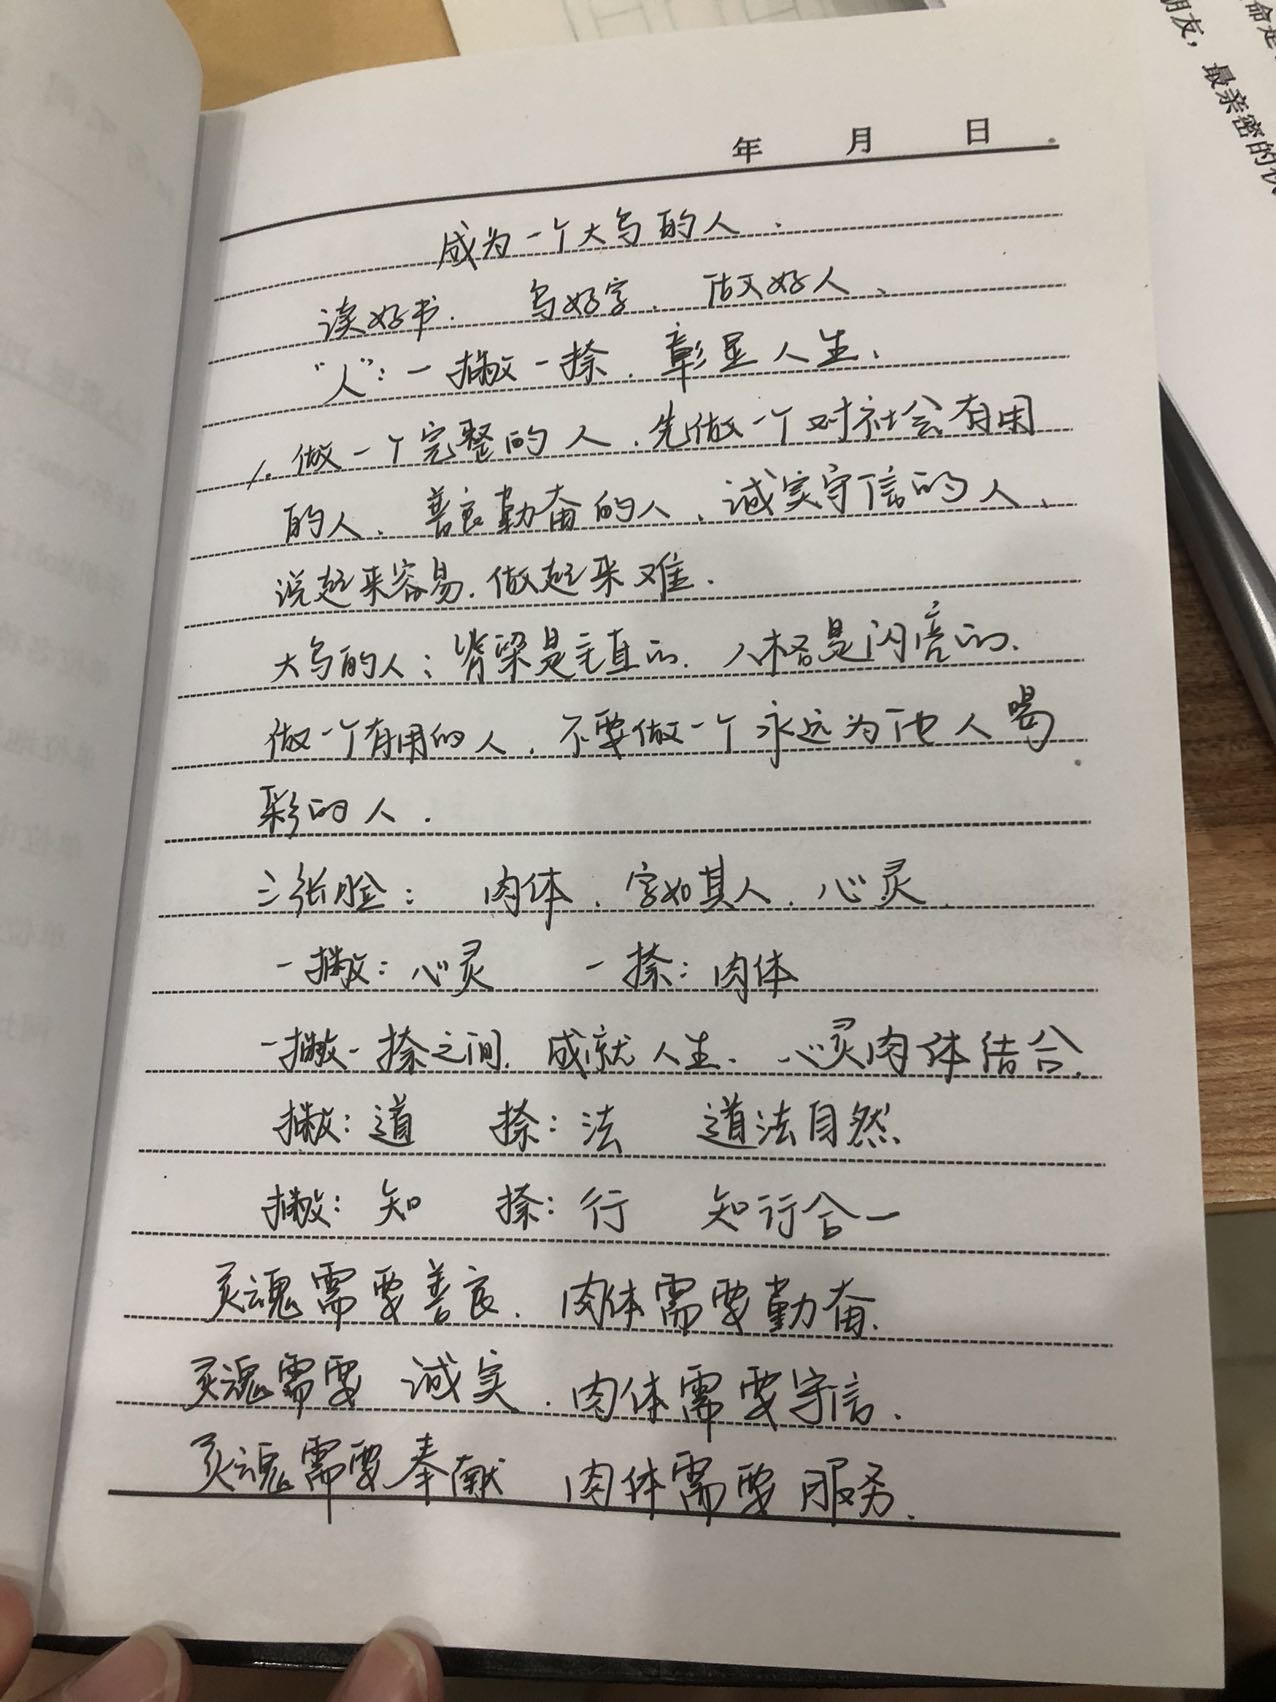 年 月 日
成为一个大写的人.
读好书. 写好字. 做好人.
"人":一撇一捺.彰显人生.
1.做一个完整的人.先做一个对社会有用
的人.善良勤奋的人.诚实守信的人.
说起来容易.做起来难.
大写的人:脊梁是毛直的.人格是闪亮的.
做一个有用的人.不要做一个永远为他人喝
彩的人.
三张脸: 肉体.字如其人.心灵.
一撇:心灵 一捺:肉体
一撇一捺之间.成就人生.心灵肉体结合.
撇:道 捺:法 道法自然.
撇:知 捺:行 知行合一
灵魂需要善良.肉体需要勤奋.
灵魂需要诚实.肉体需要守信.
灵魂需要奉献 肉体需要服务.
朋友,最亲密的伙